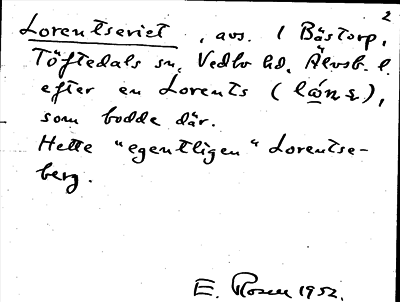 2
Lorentseriet, avs. i Bästorp,
Töftedals sn, Vedbo hd, Älvsb. l.
efter en Lorents
som bodde där.
Hette "egentligen" Lorentse-
berg.
E. Rosen 1952.